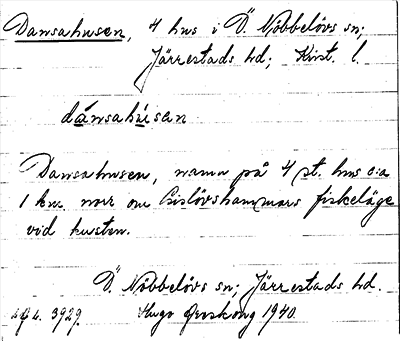 Dansahusen, 4 hus i Ö. Nöbbelövs sn;
Järrestads hd; Krist. l.
dánsahúsan
Dansahusen, namn på 4 st. hus c:a
1 km. norr om Gislövshammars fiskeläge
vid kusten.
Ö. Nöbbelövs sn; Järrestads hd.
3929. Hugo Areskoug 1940.